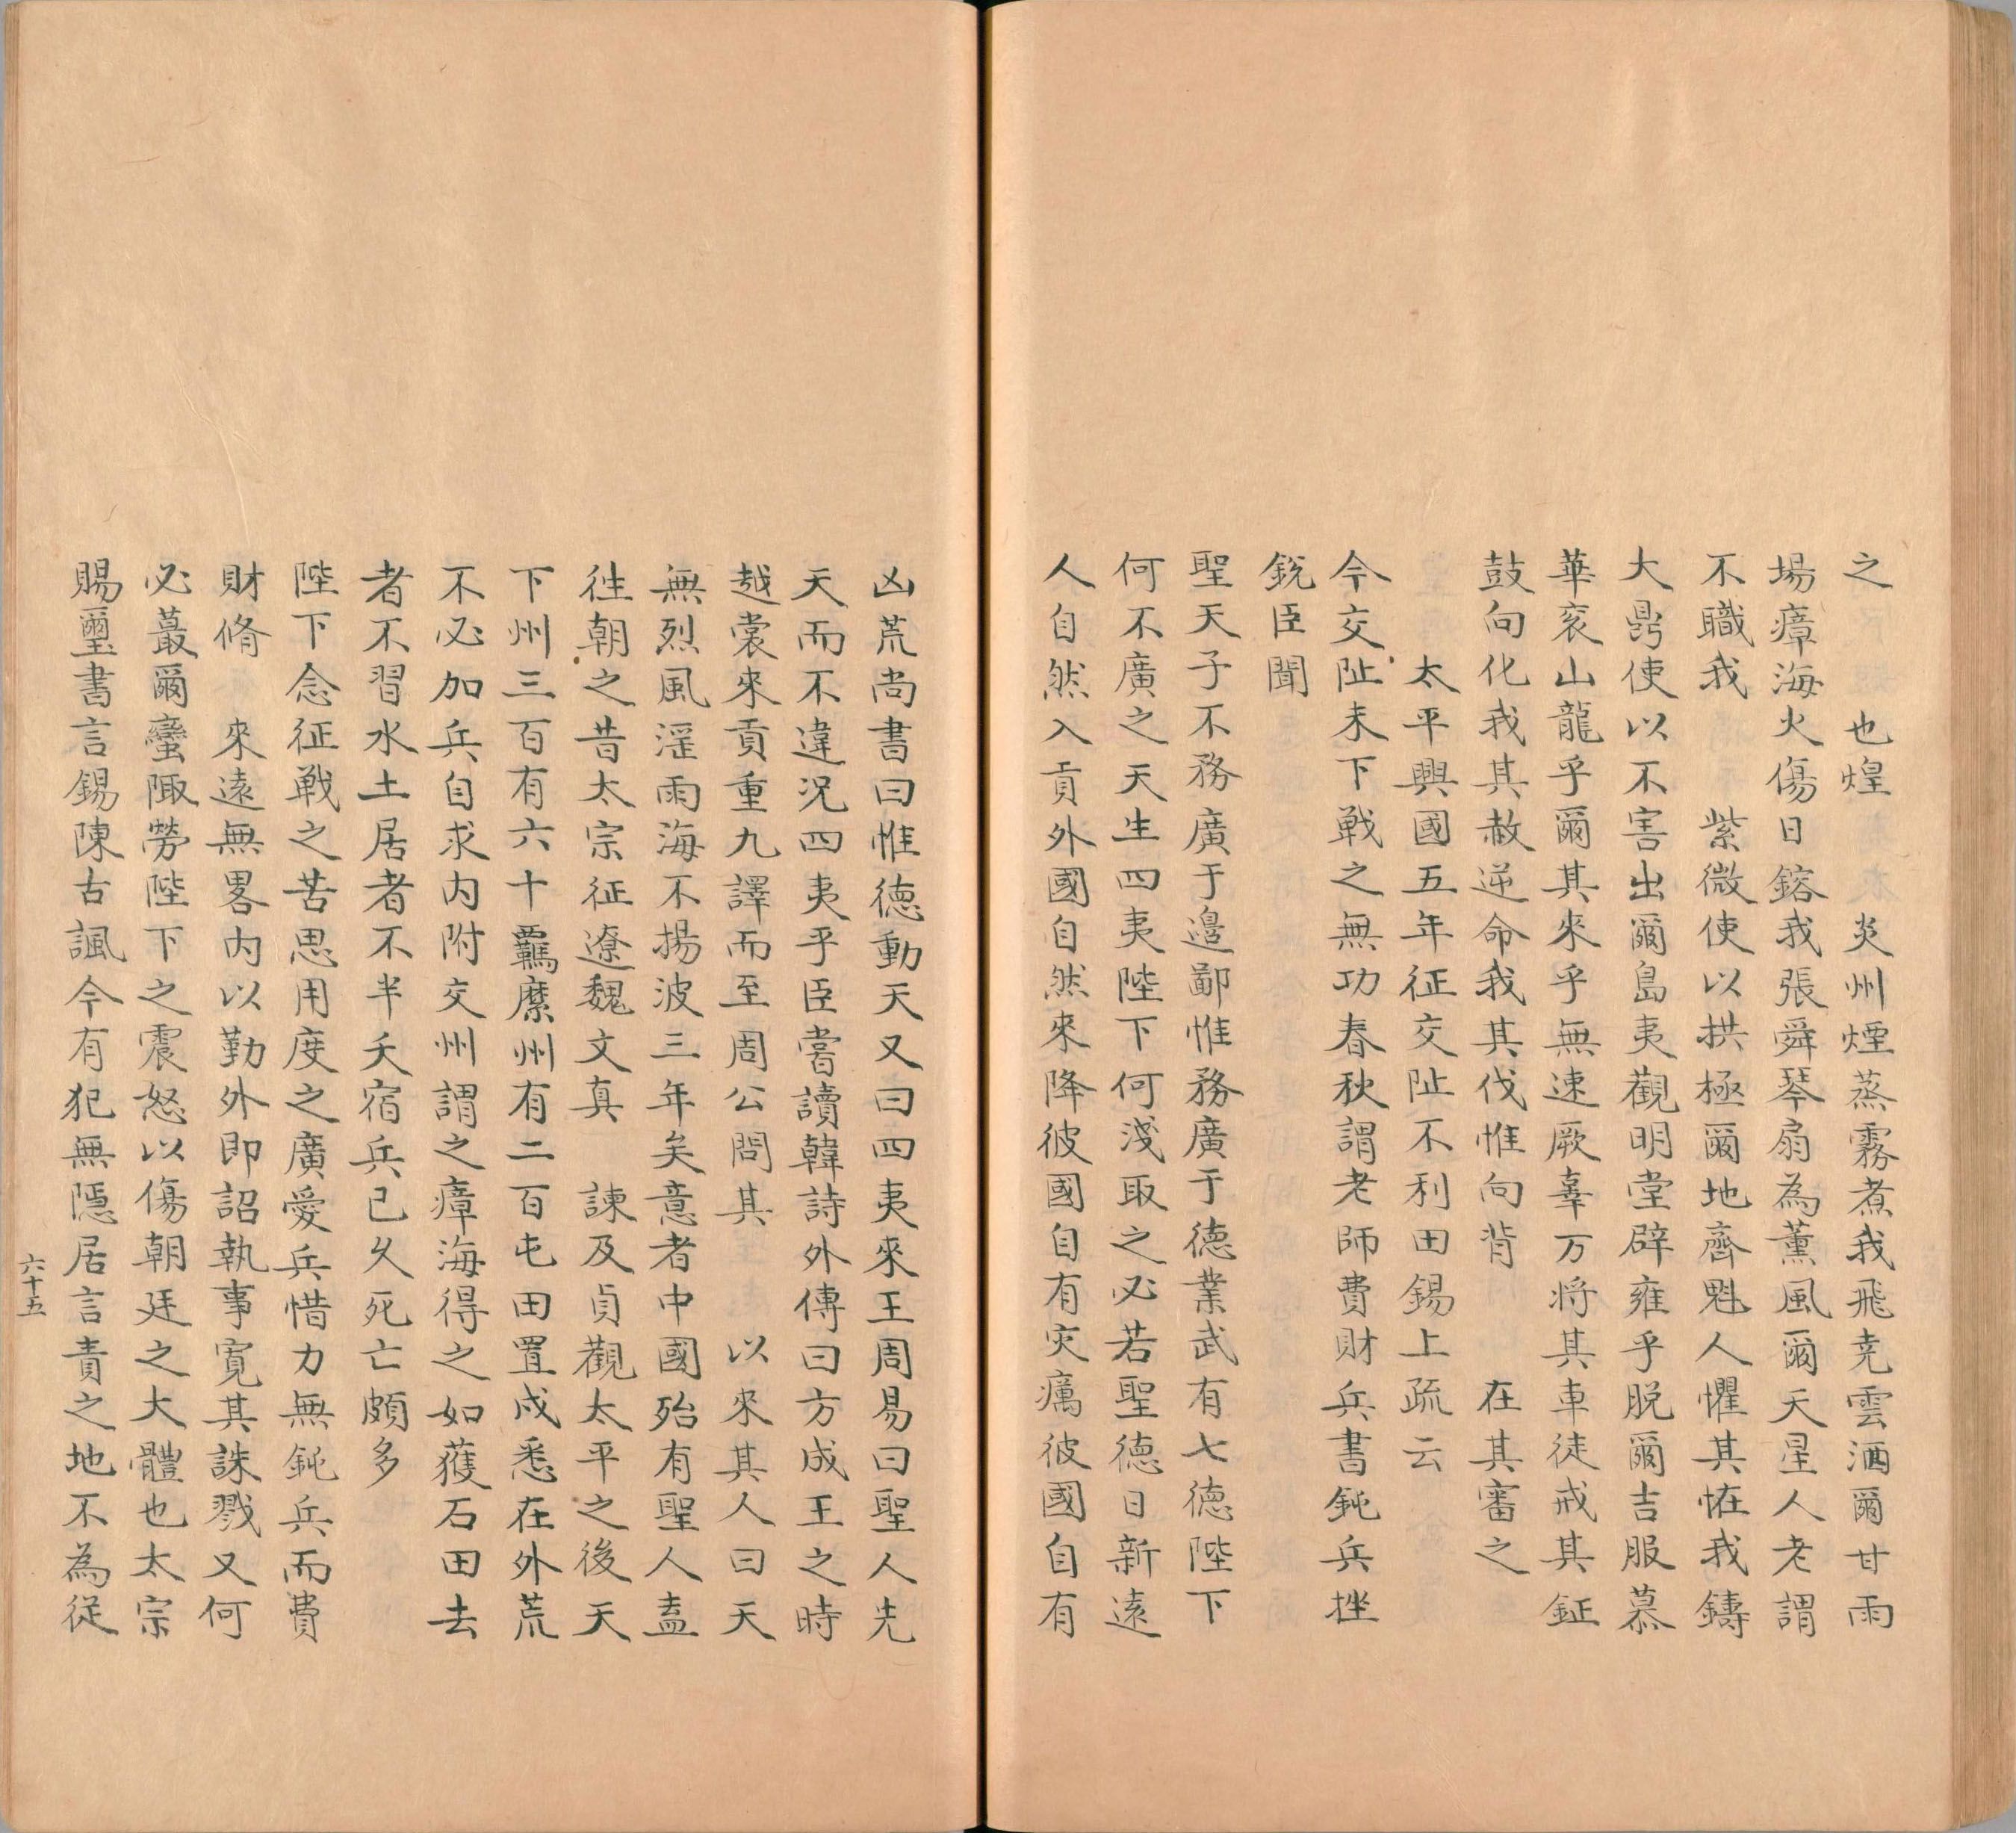 之　　也煌　　炎州煙蒸霧煮我飛尭雲洒爾甘雨
場瘴海火傷日鎔我張舜琴扇為薰風爾天星人老謂
不職我　　紫微使以拱極爾地齊魁人懼其恠我鑄
大鼎使以不害出爾島夷觀明堂辟雍乎脱爾吉服慕
華衮山龍乎爾其來乎無速厥辜万将其車徒戒其鉦
鼓向化我其赦逆命我其伐惟向背　　在其審之
太平興國五年征交阯不利田錫上疏云
今交阯未下戰之無功春秋謂老師費財兵書鈍兵挫
銳臣聞
聖天子不務廣于邉鄙惟務廣于德業武有七德陛下
何不廣之天生四夷陛下何淺取之必若聖德日新遠
人自然入貢外國自然來降彼國自有灾癘彼國自有
凶荒尚書曰惟德動天又曰四夷來王周易曰聖人先
天而不違况四夷乎臣嘗讀韓詩外傳曰方成王之時
越裳來貢重九譯而至周公問其　　以來其人曰天
無烈風滛雨海不揚波三年矣意者中國殆有聖人盍
徃朝之昔太宗征遼魏文真　諫及貞觀太平之後天
下州三百有六十羈縻州有二百屯田置戍悉在外荒
不必加兵自求内附交州謂之瘴海得之如獲石田去
者不習水土居者不半夭宿兵已久死亡頗多
陛下念征戰之苦思用度之廣愛兵惜力無鈍兵而費
財脩　來遠無畧内以勤外即詔執事寛其誅戮又何
必蕞爾蠻陬勞陛下之震怒以傷朝廷之大體也太宗
賜璽書言錫陳古諷今有犯無隱居言責之地不為從
六十五